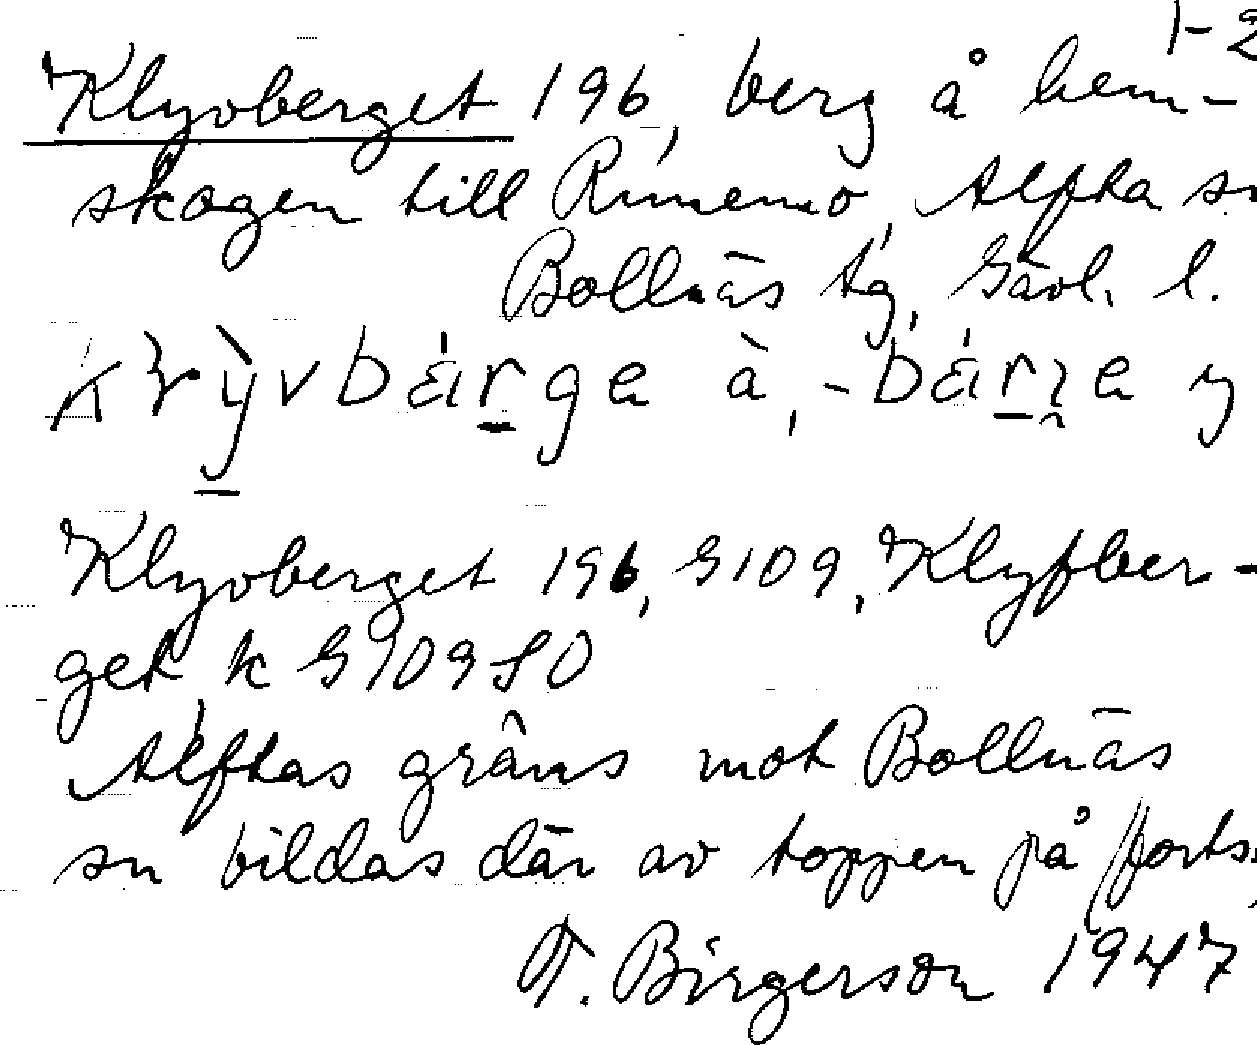 1-2
Klyvberget 196, berg å hem-
skogen till Runemo, Alfta sn
Bollnäs tg, Gävl. l.
à,
Klyvberget 196, G109, Klyfber-
get, k G109 SO
Alftas gräns mot Bollnäs
sn bildas där av toppen på (forts.
T. Birgerson 1947